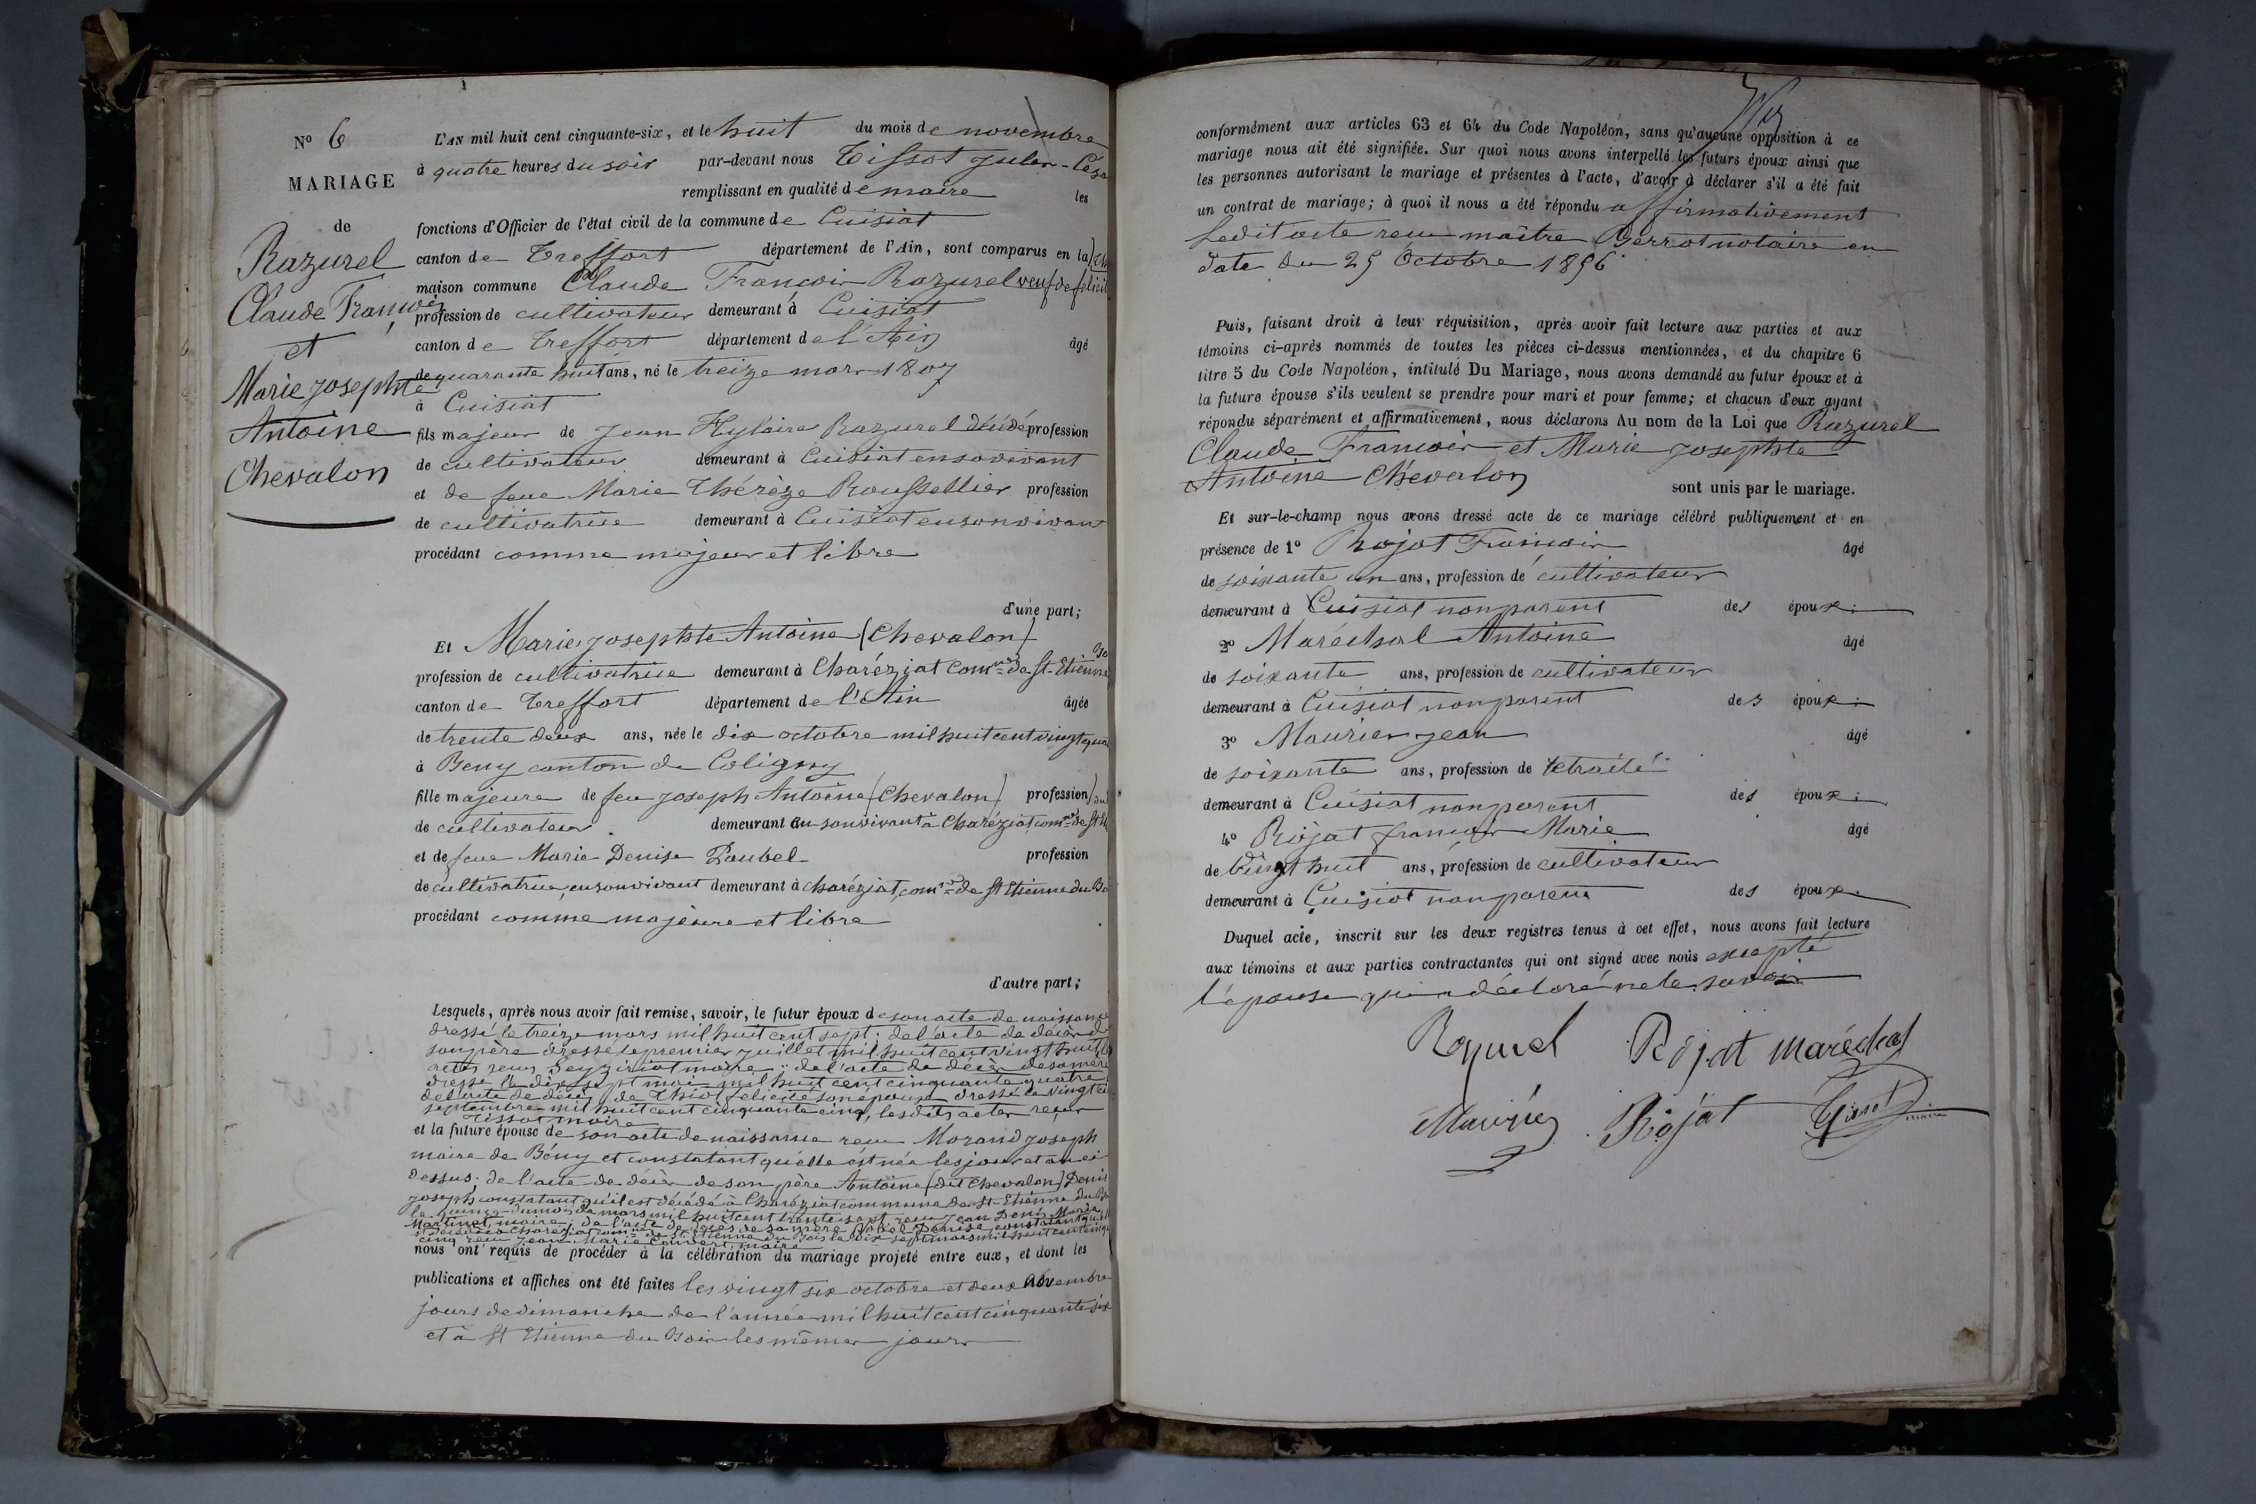 N° 6
MARIAGE
de
Razurel
Claude François
et
Marie Josephte
Antoine
Chevalon
L'AN mil huit cent cinquante-six, et le huit du mois de novembre
à quatre heures du soir par-devant nous Tissot Jules-César
remplissant en qualité de maire les
fonctions d'Officier de l'état civil de la commune de Cuisiat
canton de Treffort département de l'Ain, sont comparus en la
maison commune Claude François Razurel veuf de
profession de cultivateur demeurant à Cuisiat
canton de Treffort département de l'Ain âgé
de quarante huit ans, né le treize mars 1807
à Cuisiat
fils majeur de Jean Hylaire Razurel décédé profession
de cultivateur demeurant à Cuisiat en sovivant
et de feue Marie Thérèze Roussellier profession
de cultivatrice demeurant à Cuisiat en sonvivant
procédant comme majeur et libre
d'une part;
Et Marie Josephte Antoine (Chevalon)
profession de cultivatrice demeurant à Charéziat com^ne de St-Etienne
canton de Treffort département de l'Ain âgée
de trente deux ans, née le dix octobre mil huit cent vingt
à Beny canton de Coligny
fille majeure de feu Joseph Antoine (Chevalon) profession
de cultivateur demeurant en sonvivant à Charéziat, com^ne de St
et de feue Marie Denise Paubel profession
de cultivatrice, en sonvivant demeurant à Charéziat, com^ne de St Etienne du
procédant comme majeure et libre
d'autre part;
Lesquels, après nous avoir fait remise, savoir, le futur époux de son acte de naissance
dressé le treize mars mil huit cent sept; de l'acte de décès de
son père dressé le premier juillet mil huit cent vingt huit
actes reçus maire; de l'acte de décès de sa mère
dressé le dix sept mai mil huit cent cinquante quatre
de l'acte de décès de Thiot félicité son épouse dressé le vingt
septembre mil huit cent cinquante cinq, les dits actes reçus
Tissot maire
et la future épouse de son acte de naissance reçu Morand Joseph
maire de Bény et constatant qu'elle est née les jour et an ci
dessus; de l'acte de décès de son père Antoine (dit Chevalon) Denis
Joseph constatant qu'il est décédé à Charéziat commune de St-Etienne du
le du mois de mars mil huit cent trente sept reçu Jean Denis Marie
Martinet, maire; de l'acte de décès de sa mère Denise, constatant
décédée à Charéziat com^ne de St Etienne du Bois le dix sept mars mil huit cent
cinq reçu Jean Marie Convert, maire
nous ont requis de procéder à la célébration du mariage projeté entre eux, et dont les
publications et affiches ont été faites les vingt six octobre et deux novembre
jours de dimanche de l'année mil huit cent cinquante six
et à St Etienne du Bois les mêmes jours
conformément aux articles 63 et 64 du Code Napoléon, sans qu'aucune opposition à ce
mariage nous ait été signifiée. Sur quoi nous avons interpellé les futurs époux ainsi que
les personnes autorisant le mariage et présentes à l'acte, d'avoir à déclarer s'il a été fait
un contrat de mariage; à quoi il nous a été répondu affirmativement
Ledit acte reçu maître notaire en
date du 25 Octobre 1856
Puis, faisant droit à leur réquisition, après avoir fait lecture aux parties et aux
témoins ci-après nommés de toutes les pièces ci-dessus mentionnées, et du chapitre 6
titre 5 du Code Napoléon, intitulé Du Mariage, nous avons demandé au futur époux et à
la future épouse s'ils veulent se prendre pour mari et pour femme; et chacun d'eux ayant
répondu séparément et affirmativement, nous déclarons Au nom de la Loi que Razurel
Claude François et Marie Josephte
Antoine Chevalon sont unis par le mariage.
Et sur-le-champ nous avons dressé acte de ce mariage célébré publiquement et en
présence de 1° Rojat François âgé
de soixante un ans, profession de cultivateur
demeurant à Cuisiat non parent des époux;
2° Maréchal Antoine âgé
de soixante ans, profession de cultivateur
demeurant à Cuisiat non parent des époux;
3° Maurier Jean âgé
de soixante ans, profession de retraité
demeurant à Cuisiat non parent des époux;
4° Rojat françois Marie âgé
de vingt huit ans, profession de cultivateur
demeurant à Cuisiat non parent des époux.
Duquel acte, inscrit sur les deux registres tenus à cet effet, nous avons fait lecture
aux témoins et aux parties contractantes qui ont signé avec nous excepté
l'épouse qui a déclaré ne le savoir
Rojat maréchal
Rojat Tissot maire